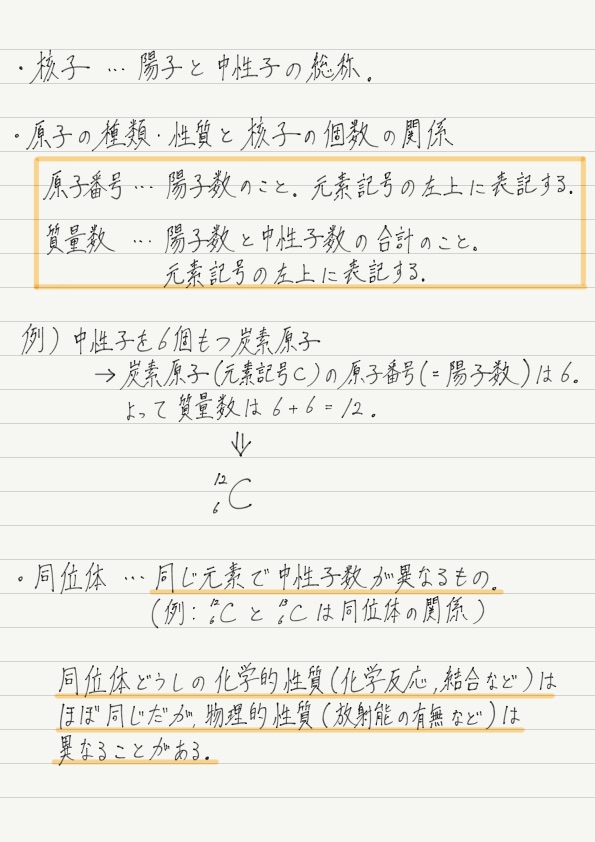 ・核子 … 陽子と中性子の総称。
・原子の種類・性質と核子の個数の関係
原子番号 … 陽子数のこと。元素記号の左上に表記する。
質量数 … 陽子数と中性子数の合計のこと。
元素記号の左上に表記する。
例) 中性子を6個もつ炭素原子
→ 炭素原子(元素記号C)の原子番号(=陽子数)は6。
よって質量数は 6+6=12。
⇓
¹²₆C
・同位体 … 同じ元素で中性子数が異なるもの。
(例: ¹²₆C と ₆C は同位体の関係)
同位体どうしの化学的性質(化学反応,結合など)は
ほぼ同じだが,物理的性質(放射能の有無など)は
異なることがある。